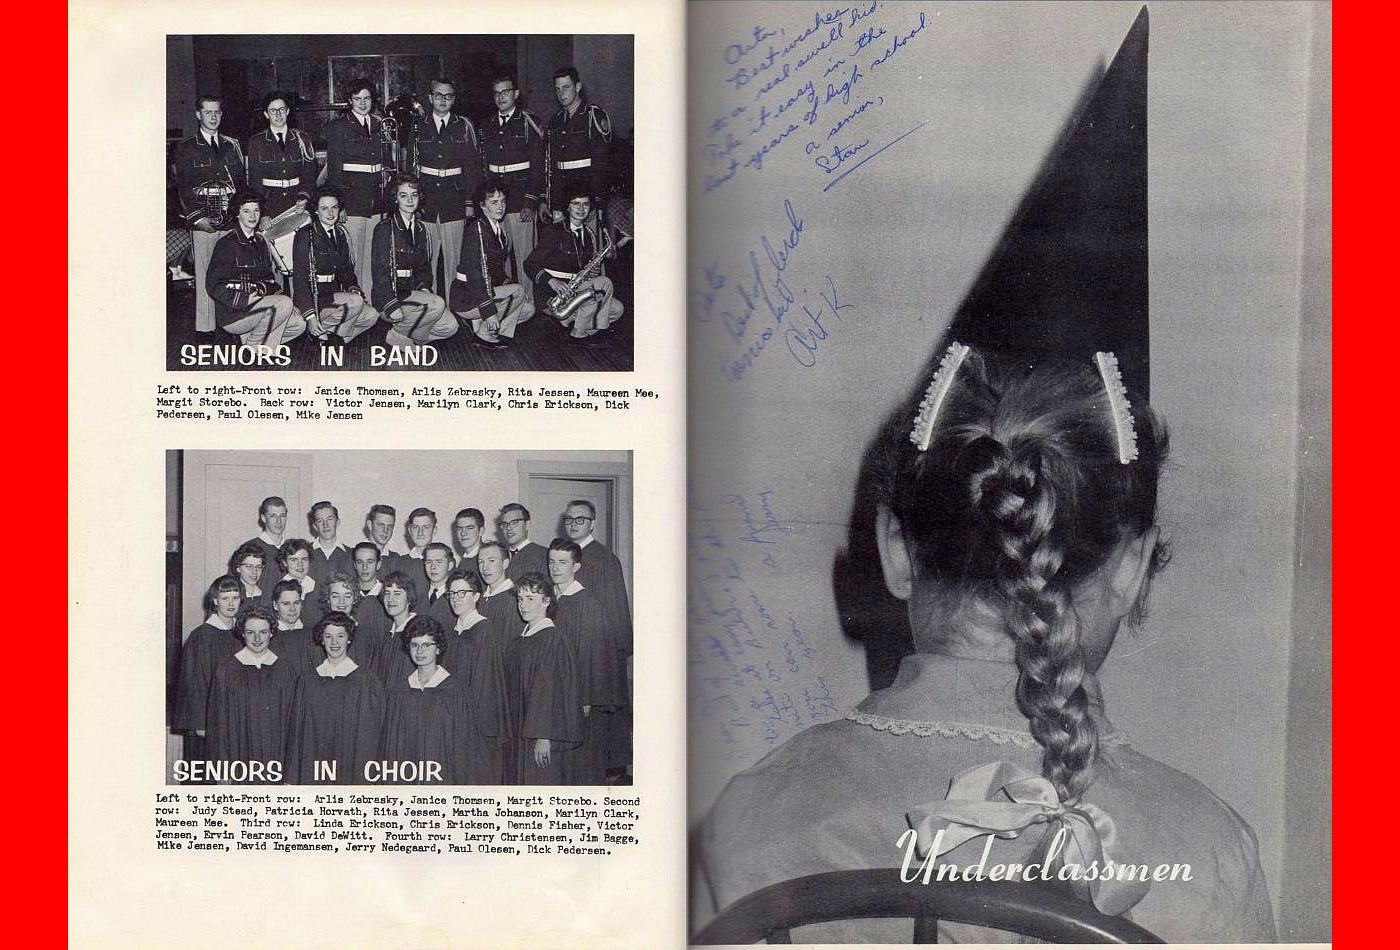 SENIORS IN BAND
Left to right-Front row: Janice Thomsen, Arlis Zebrasky, Rita Jessen, Maureen Mee,
Margit Storebo. Back row: Victor Jensen, Marilyn Clark, Chris Erickson, Dick
Pedersen, Paul Olesen, Mike Jensen
SENIORS IN CHOIR
Left to right-Front row: Arlis Zebrasky, Janice Thomsen, Margit Storebo. Second
row: Judy Stead, Patricia Horvath, Rita Jessen, Martha Johanson, Marilyn Clark,
Maureen Mee. Third row: Linda Erickson, Chris Erickson, Dennis Fisher, Victor
Jensen, Ervin Pearson, David DeWitt. Fourth row: Larry Christensen, Jim Bagge,
Mike Jensen, David Ingemansen, Jerry Nedegaard, Paul Olesen, Dick Pedersen.
Best wishes
to a real swell kid.
Take it easy in the
years of high school.
a senior,
Stan
Best of
Art K
Underclassmen